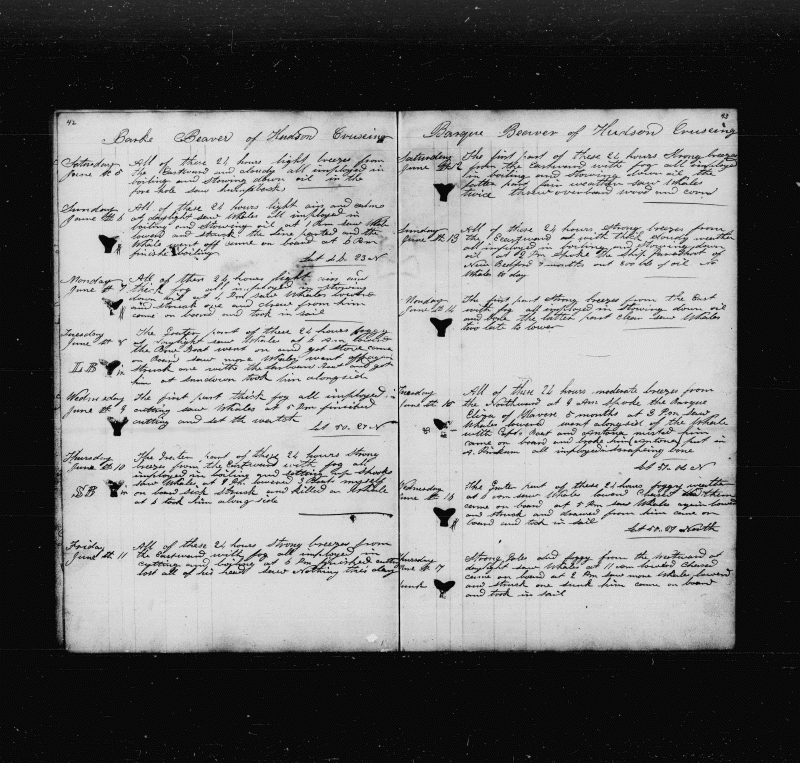 42
Barke Beaver of Hudson Cruseing
Saturday All of these 24 hours light breezes from
June th 5 the Eastward and cloudy all imployed in
boiling and stowing down oil in the
fore hole saw
Sunday All of these 24 hours light airs and calms
June th 6 at daylight saw Whales all imployed in
boiling and stowing oil at 1 Pm saw Whales
lowerd and struck the line parted and the
Whale went off came on board at 6 Pm
finished boiling
Lat 23 N
Monday All of these 24 hours light airs and
June th 7 thick fog all imployed in stowing
down oil at 1 Pm saw Whales lowerd
and struck one and from him
came on board and took in sail
Tuesday The Enter part of these 24 hours foggy
June th 8 at daylight saw Whales at 6 Am lowerd
the Bow Boat went on and got stove came
LB on Board saw more Whales went off again
struck one with the Larboard Boat and got
him at sundown took him alongside
Wednesday The first part thick fog all imployed in
June th 9 cutting saw Whales at 5 Pm finished
cutting and set the watch
Lat 50.27 N
Thursday The Enter part of these 24 hours strong
June th 10 breezes from the Eastward with fog all
imployed in boiling and cutting up
saw Whales at 1 Pm lowerd 3 Boats myself
on board sick struck and killed a Whale
at 6 took him along side
Friday All of these 24 hours strong breezes from
June th 11 the Eastward with fog all imployed in
cutting and boiling at 6 Pm finished cutting
lost all of his head saw Nothing this day
43
Barque Beaver of Hudson Cruseing
Saturday The first part of these 24 hours strong breezes
June th 12 from the Eastward with fog all imployed
in boiling and stowing down oil the
latter part fair weather saw Whales
twice threw overboard wood and corn
Sunday All of these 24 hours strong breezes from
June th 13 the Eastward with thick cloudy weather
all imployed in boiling and stowing down
oil at 12 Pm spoke the Ship of
New Bedford 7 months out 200 bbls of oil No
Whales to day
Monday The first part strong breezes from the East
June th 14 with fog all imployed in stowing down oil
and the latter part clear saw Whales
too late to lower
Tuesday All of these 24 hours moderate breezes from
June th 15 the Northward at 8 Am spoke the Barque
Eliza of Havere 5 months at 3 Pm saw
Whales lowerd went alongside of the Whale
with Capts Boat and Antone missed him
came on board and broke him (Antone) put in
A. Pinkum all imployed scraping bone
Lat 51.06 N
Wednesday The Enter part of these 24 hours foggy weather
June th 16 at 6 Am saw Whales lowerd Chased them
came on board at 5 Pm saw Whales again lowerd
and struck and drawed from him came on
board and took in sail
Lat 50.57 North
Thursday Strong gales and foggy from the Westward at
June th 17 daylight saw Whales at 11 Am lowerd chased
came on board at 2 Pm saw more Whales lowerd
sunk and struck one sunk him came on board
and took in sail